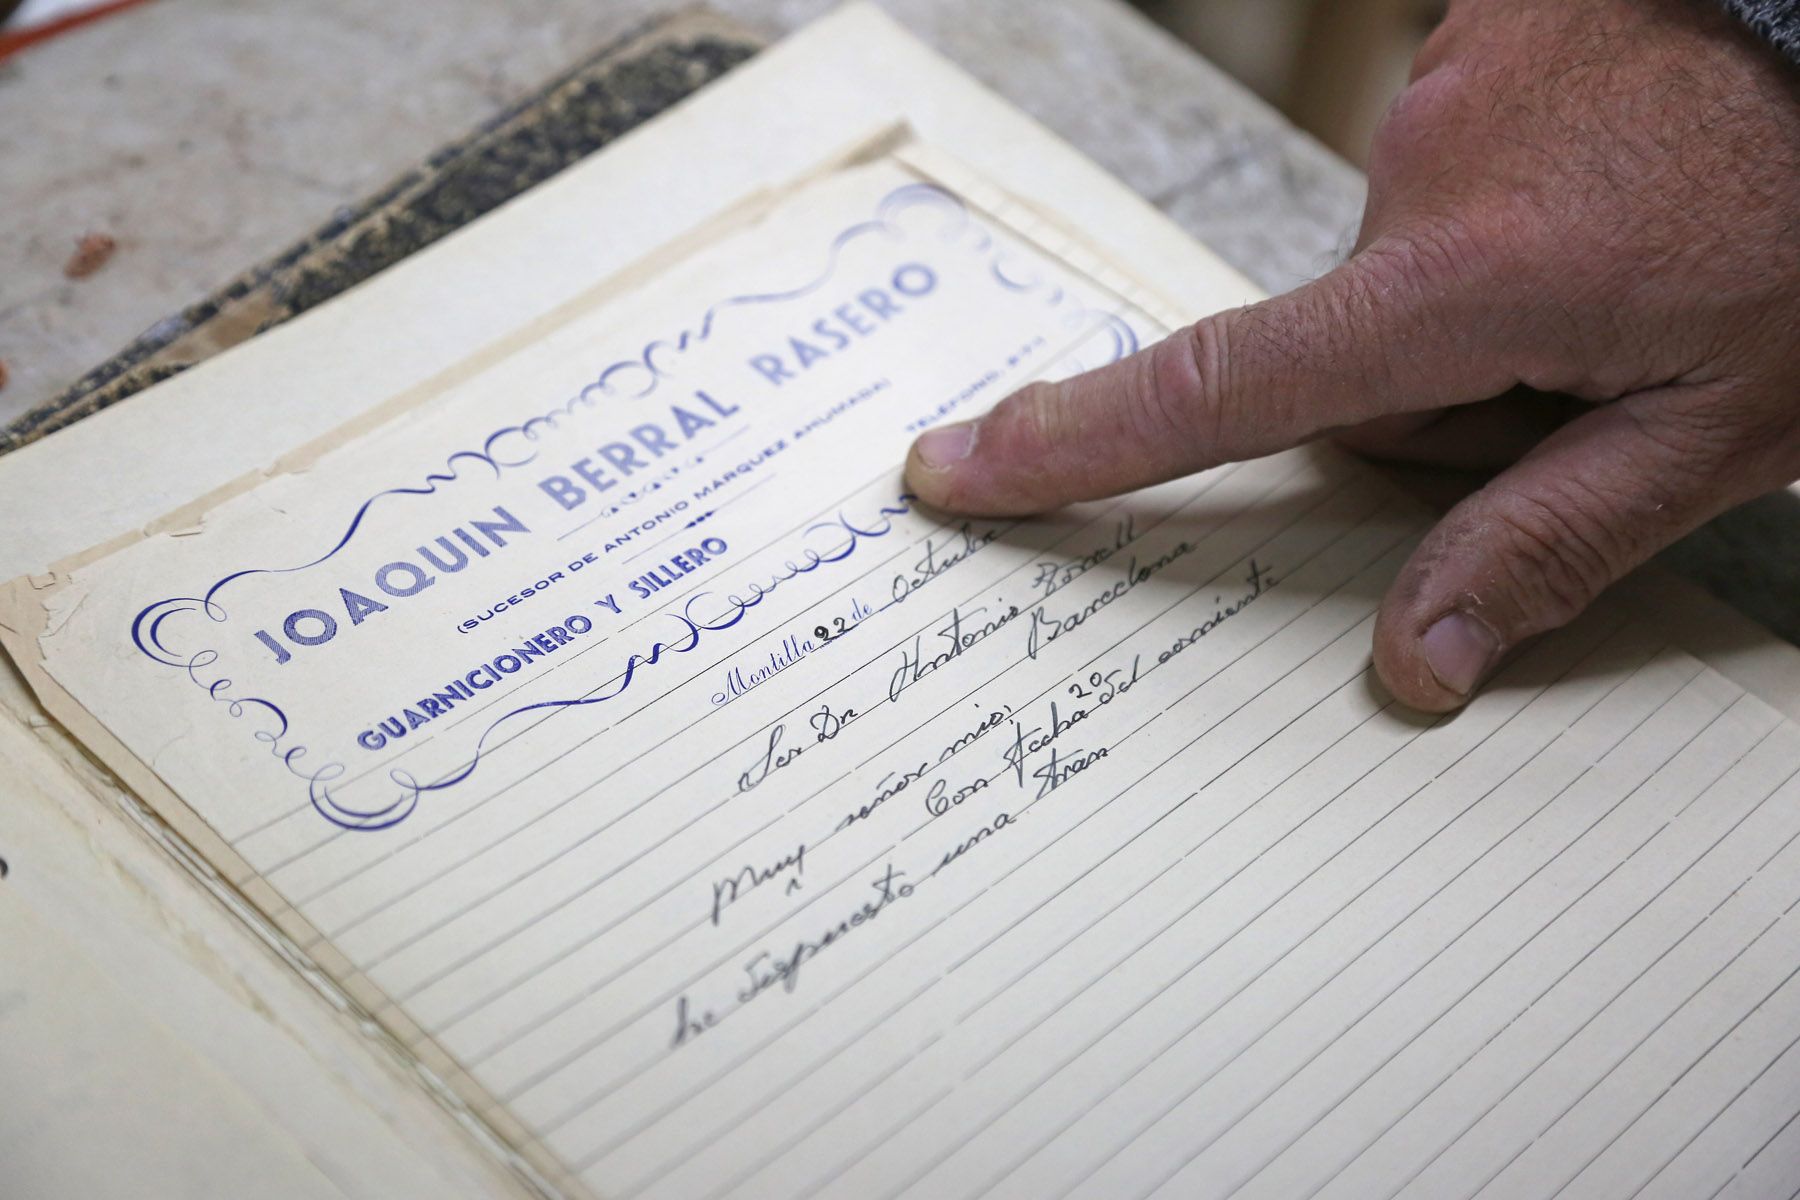 JOAQUIN BERRAL RASERO
(SUCESOR DE ANTONIO MARQUEZ AHUMADA)
TELEFONO,
GUARNICIONERO Y SILLERO
Montilla 22 de Octubre
Antonio Borrell
Barcelona
Muy señor mio;
Con fecha 20 del corriente
he dispuesto una tran